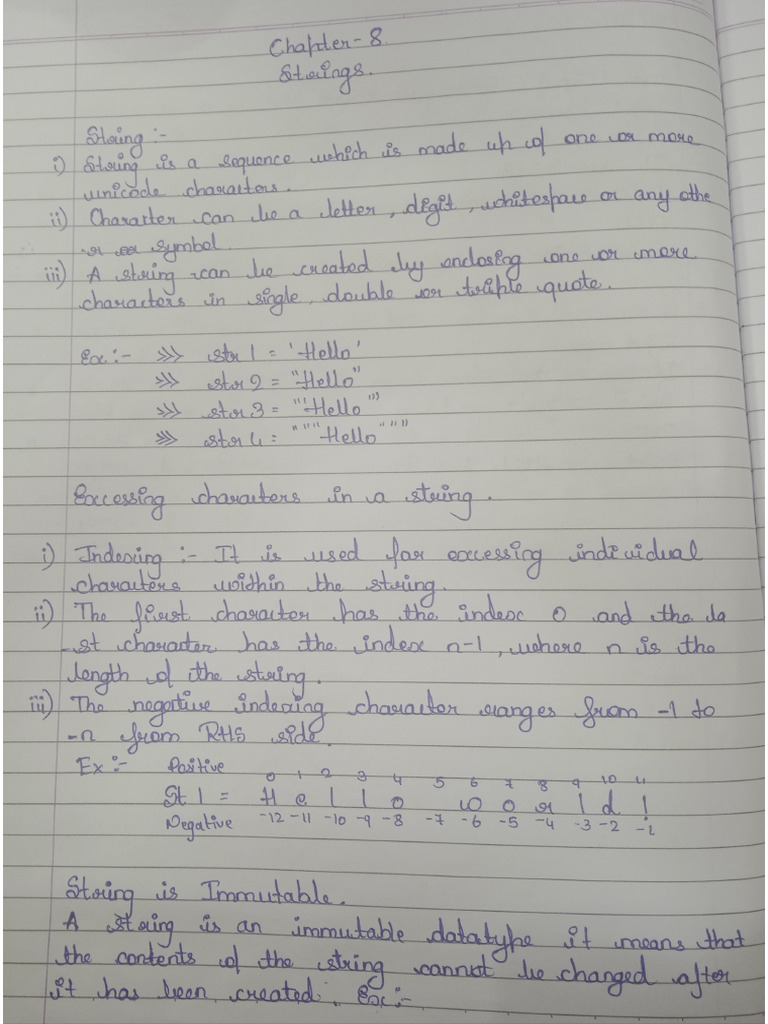 Chapter-8
Strings.
String :-
i) String is a sequence which is made up of one or more
unicode characters.
ii) Character can be a letter, digit, whitespace or any othe
r or symbol.
iii) A string can be created by enclosing one or more
characters in single, double or triple quote.
Ex:- >>> str 1 = 'Hello'
>>> str 2 = "Hello"
>>> str 3 = '''Hello'''
>>> str 4 = """Hello"""
Excessing characters in a string.
i) Indexing :- It is used for excessing individual
characters within the string.
ii) The first character has the index 0 and the la
-st character has the index n-1, where n is the
length of the string.
iii) The negative indexing character ranges from -1 to
-n from RHS side.
Ex:- Positive 0 1 2 3 4 5 6 7 8 9 10 11
St 1 = H e l l o w o r l d !
Negative -12 -11 -10 -9 -8 -7 -6 -5 -4 -3 -2 -1
String is Immutable.
A string is an immutable datatype it means that
the contents of the string cannot be changed after
it has been created. Ex:-